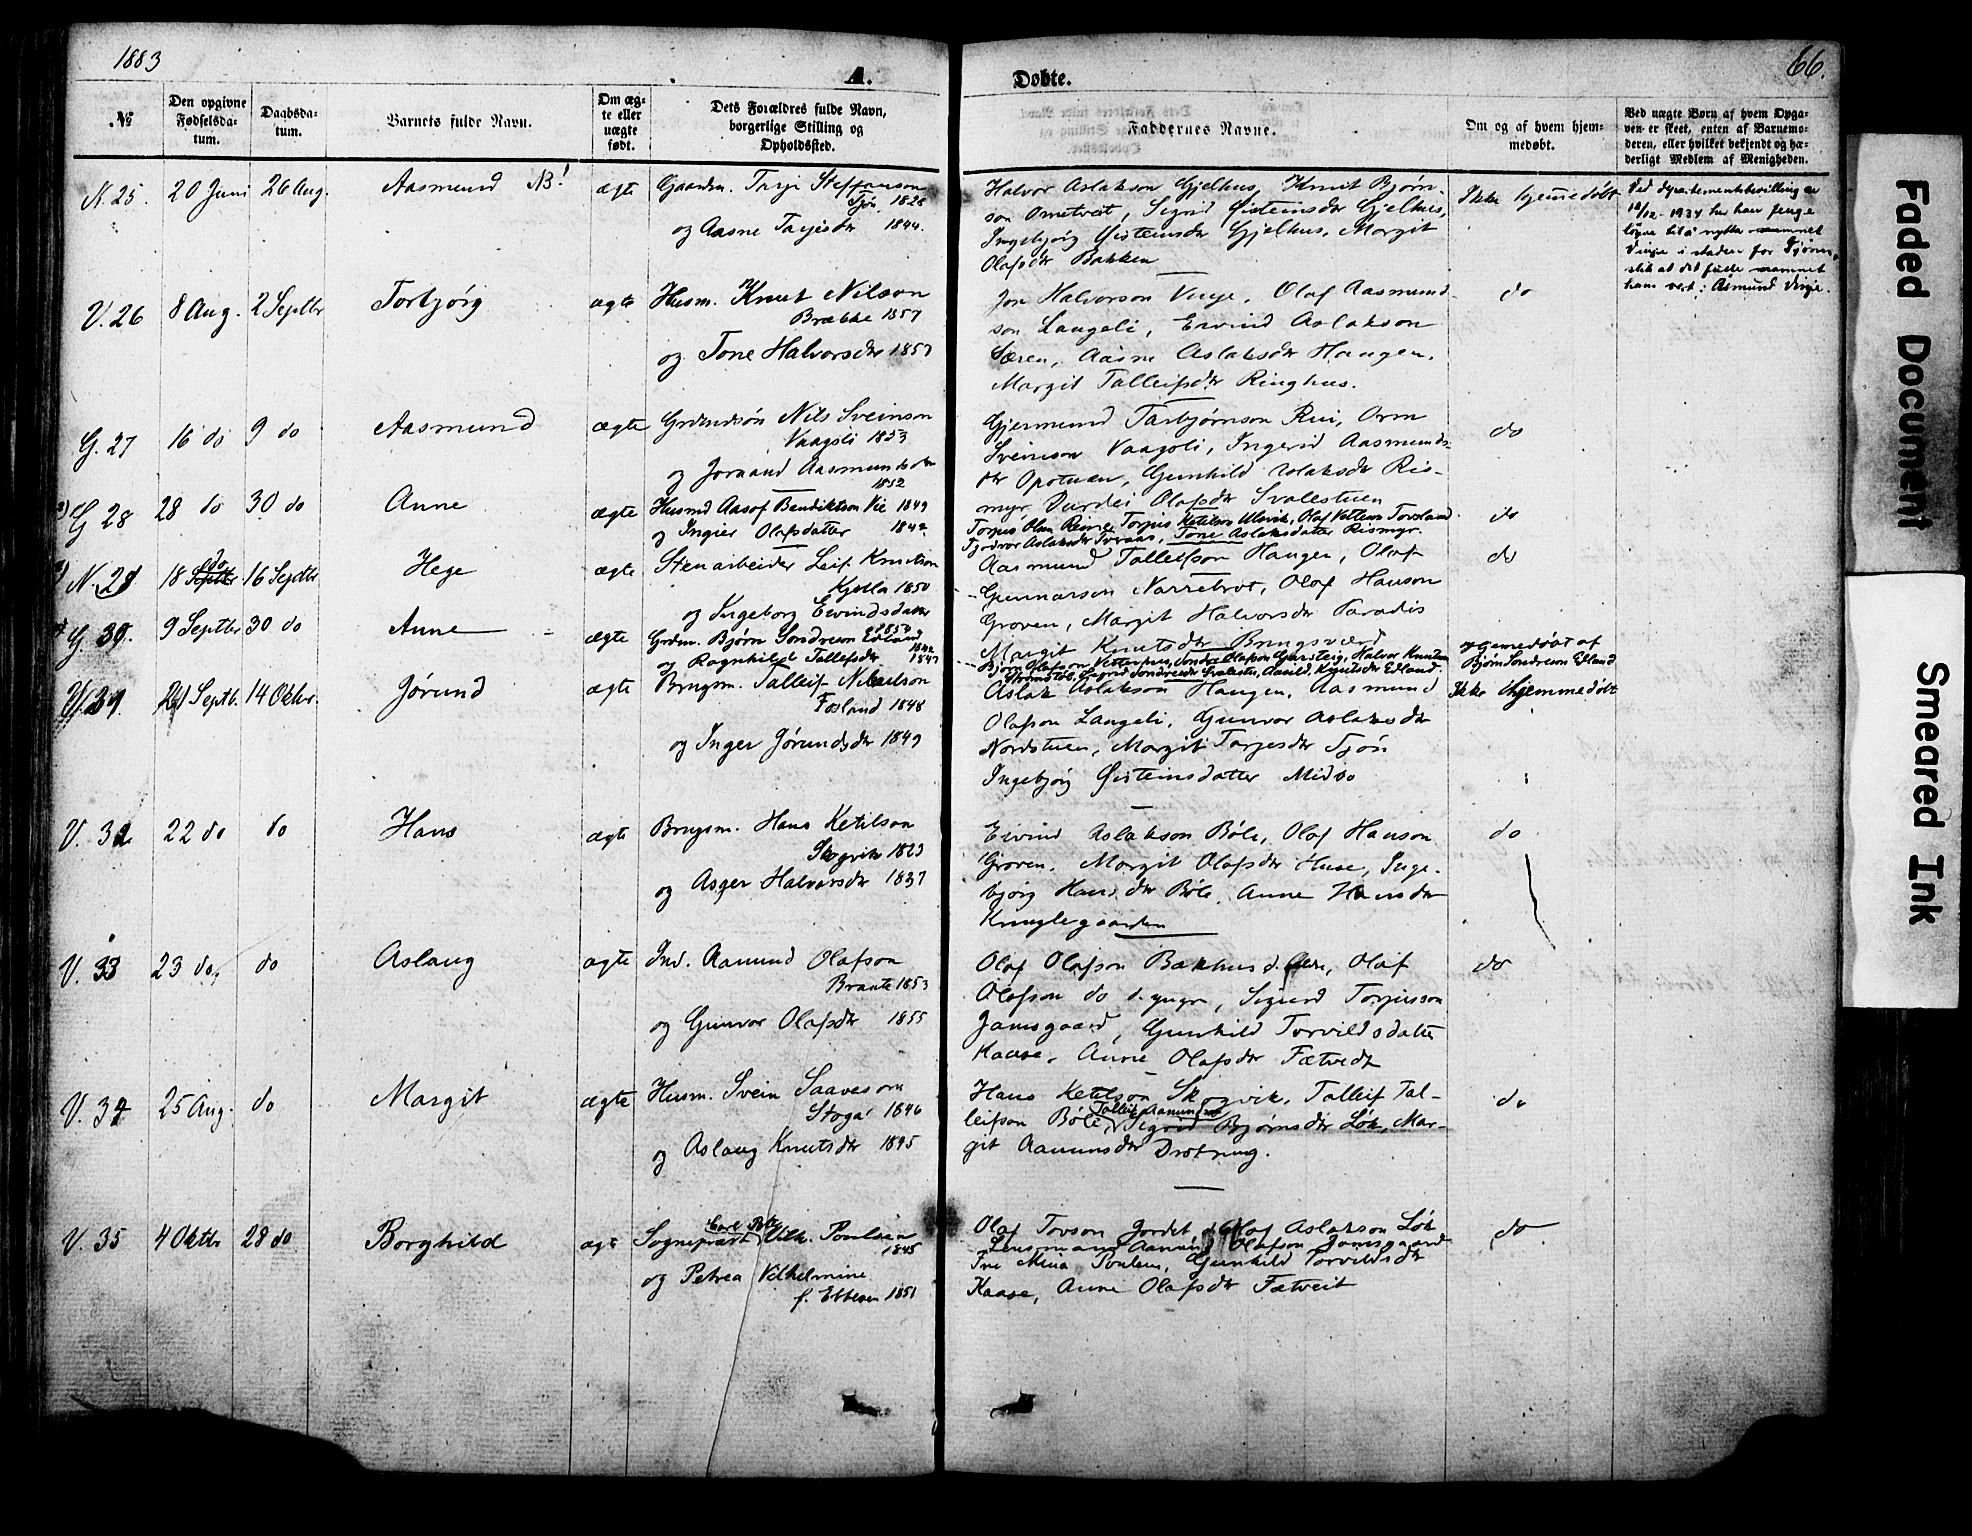 1883
A.
Døbte.
66.
№
Den opgivne Fødselsdatum.
Daabsdatum.
Barnets fulde Navn.
Om ægte eller uægte født.
Dets Forældres fulde Navn, borgerlige Stilling og Opholdssted.
Faddernes Navne.
Om og af hvem hjemmedøbt.
Ved uægte Børn af hvem Opgaven er skeet, enten af Barnemoderen, eller hvilket bekjendt og hæderligt Medlem af Menigheden.
N. 25. 20 Juni 26 Aug. Aasmund NB! ægte
Gaardm. Tarje Steffensson
Tjøn 1826
og Aasne Tarjesdr 1844.
Halvor Aslakson Gjelhus, Knut Bjørn-
son Ometveit, Sigrid Øisteinsdr Gjelhus,
Ingebjørg Øisteinsdr Gjelhus, Margit
Olafsdr Bakken
Ikke hjemmedøbt
Ved departementsbevilling av
10/12-1934 har han fenge
løyve til å nytte namnet
Vinje i staden for Tjønn,
slik at det fulle namnet
hans vert: Åsmund Vinje.
V. 26 8 Aug. 2 Septbr Torbjørg ægte
Husm. Knut Nilson
Brække 1857
og Tone Halvorsdr 1857
Jon Halvorson Vinje, Olaf Aasmund-
son Langeli, Eivind Aslakson
Særen, Aasne Aslaksdr Haugen,
Margit Talleifsdr Ringhus.
do
G. 27 16 do 9 do Aasmund ægte
Grdmdsøn Nils Sveinson
Vaagsli 1853
og Joraand Aasmundsdr
1852
Gjermund Tarbjørnson Rui, Orm
Sveinson Vaagsli, Ingerid Aasmunds-
dr Opstuen, Gunhild Aslaksdr Ris-
myr, Durdei Olafsdr Svalestuen
do
G 28 28 do 30 do Anne ægte
Husmd Aasof Bendikton Vie 1849
og Ingier Olafsdatter 1842
Torjus Olsen Torjus Ketilsen Ulvik, Olaf Vetlesen Torsland
Tone Aslaksdatter Rismyr.
do
N. 29 18 do Septbr 16 Septbr. Hege ægte
Stenarbeider Leif Knutson
Kjella 1850
og Ingeborg Eivindsdatter
Aasmund Talleifson Haugen, Olaf
Gunnarson Narrebrot, Olaf Hanson
Groven, Margit Halvorsdr Paradis
Margit Knutsdr Bringsværd
do
G. 30. 9 Septbr 30 do Anne ægte
Grdm. Bjørn Sondresen Edland
1842
og Ragnhild Tallefsdr 1847
Bjørn Olafson Vetterhus, Sondre Olafson Gjursteig, Halvor Knutsen
Sigrid Sondresdr Svalestu, Aasild Knutsdr Edland
hjemmedøbt af
Bjørn Sondresen Edland
V. 31. Septb. 14 Oktbr. Jørund ægte
Brugsm. Talleif Nikulson
Fosland 1848
og Inger Jørundsdr 1849
Aslak Aslakson Haugen, Aasmund
Olafson Langeli, Gunvor Aslaksdr
Nordstuen, Margit Tarjesdr Tjøn
Ingebjørg Øisteinsdatter Midbø
Ikke hjemmedøbt
V. 32 22 do do Hans ægte
Brugsm. Hans Ketilson
Skogvik 1823
og Asger Halvorsdr 1837
Eivind Aslakson Bøle, Olaf Hanson
Groven, Margit Olafsdr Huse, Inge-
bjørg Hansdr Bøle, Anne Hansdr
Kringlegaarden
do
V. 33 23 do, do Aslaug ægte
Ind. Aamund Olafson
Braate 1853
og Gunvor Olafsdr 1855
Olaf Olafson Bækhus d. Eldre, Olaf
Olafson do d. yngre, Sigurd Torjusson
Jamsgaard, Gunhild Torvildsdatter
Kaase, Anne Olafsdr Fætvedt
do
V. 34 25 Aug. do Margit ægte
Husm. Svein Saaveson
Stoga 1846
og Aslaug Knutsdr 1845
Hans Ketelson Skogvik, Talleif Tal-
Talleif Aamundson
leifson Bøle, Sigrid Bjørnsdr Løk, Mar-
git Aamunsdr Drotning.
do
V. 35 4 Oktbr 28 do Borghild ægte
Carl Petter
Sognepræst Vilh. Poulsen
1845
og Petrea Vilhelmine
f. Ebbesen 1851
Olaf Torson Jordet, Olaf Aslakson Løk
Lensmand Aamund Olafson Jamsgaard
Frø Mina Poulsen, Gunhild Torvildsdr
Kaase, Anne Olafsdr Fætveit
do
Faded Document
Smeared Ink